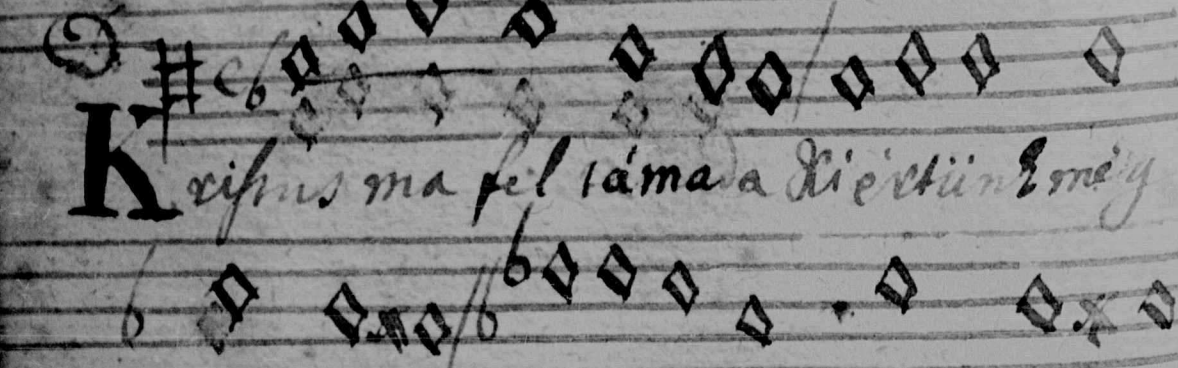 Kristus ma fel támada Ki értünk még